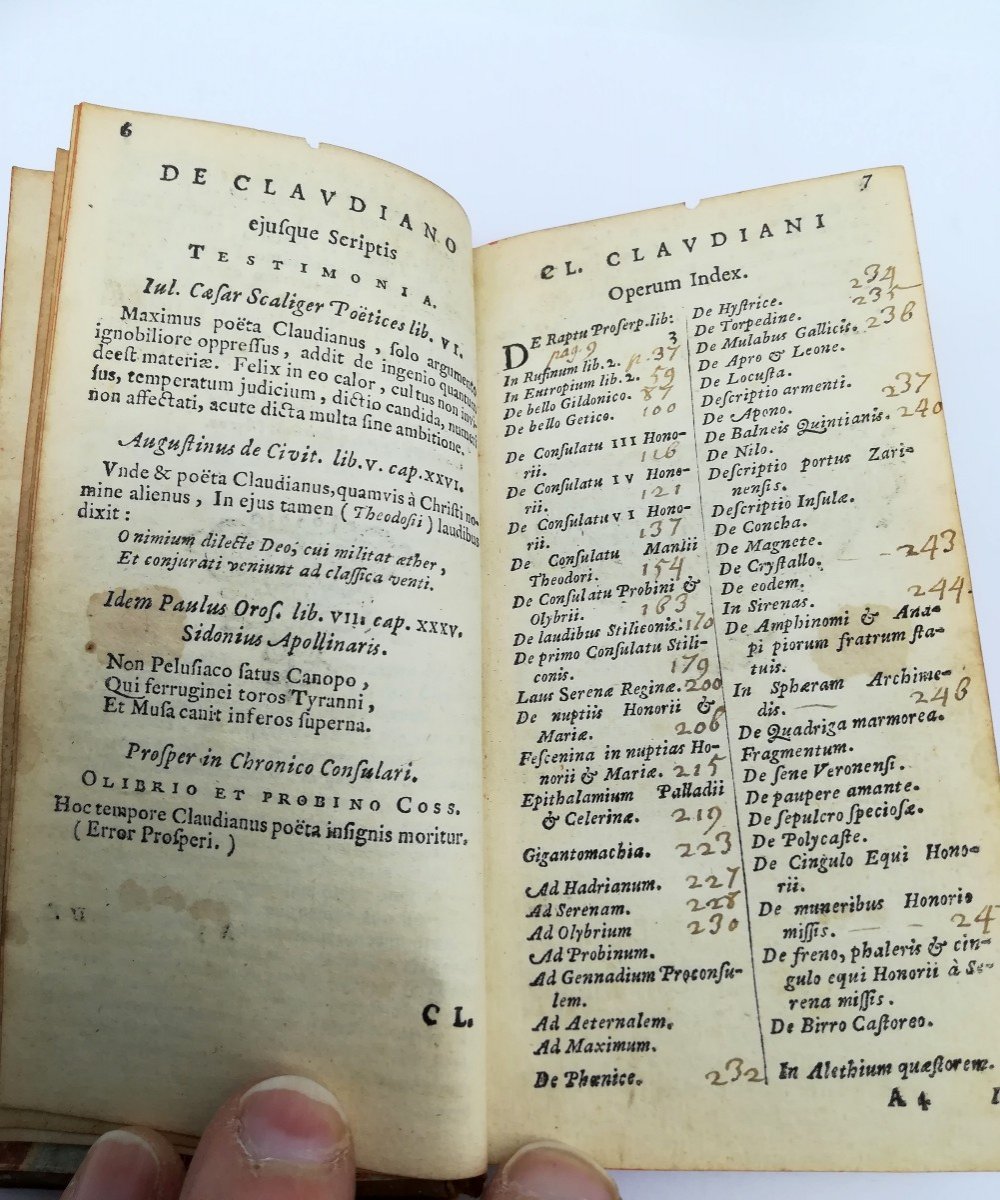 6
DE CLAVDIANO
ejuſque Scriptis
TESTIMONIA.
Iul. Cæſar Scaliger Poëtices lib. VI.
Maximus poëta Claudianus, ſolo argumento
ignobiliore oppreſſus, addit de ingenio quantum
deeſt materiæ. Felix in eo calor, cultus non invi-
ſus, temperatum judicium, dictio candida, numeri
non affectati, acute dicta multa ſine ambitione.
Auguſtinus de Civit. lib. V. cap. XXVI.
Vnde & poëta Claudianus, quamvis à Chriſti no-
mine alienus, In ejus tamen (Theodoſii) laudibus
dixit:
O nimium dilecte Deo, cui militat æther,
Et conjurati veniunt ad claſſica venti.
Idem Paulus Oroſ. lib. VII. cap. XXXV.
Sidonius Apollinaris.
Non Peluſiaco ſatus Canopo,
Qui ferruginei toros Tyranni,
Et Muſa canit inferos ſuperna.
Proſper in Chronico Conſulari.
OLIBRIO ET PROBINO COSS.
Hoc tempore Claudianus poëta inſignis moritur.
(Error Proſperi.)
CL.
7
CL. CLAVDIANI
Operum Index.
DE Raptu Proſerp. lib:
3
pag. 9
In Rufinum lib. 2. p. 37
In Eutropium lib. 2. 59
De bello Gildonico. 87
De bello Getico. 100
De Conſulatu III Hono-
rii. 116
De Conſulatu IV Hono-
rii. 121
De Conſulatu VI Hono-
rii. 137
De Conſulatu Manlii
Theodori. 154
De Conſulatu Probini &
Olybrii. 163
De laudibus Stiliconis. 170
De primo Conſulatu Stili-
conis. 179
Laus Serenæ Reginæ. 200
De nuptiis Honorii &
Mariæ. 206
Feſcenina in nuptias Ho-
norii & Mariæ. 215
Epithalamium Palladii
& Celerinæ. 219
Gigantomachia. 223
Ad Hadrianum. 227
Ad Serenam. 228
Ad Olybrium 230
Ad Probinum.
Ad Gennadium Proconſu-
lem.
Ad Aeternalem.
Ad Maximum.
De Phœnice. 232
De Hyſtrice. 234
De Torpedine. 235
De Mulabus Gallicis. 236
De Apro & Leone.
De Locuſta.
Deſcriptio armenti. 237
De Apono.
De Balneis Quintianis. 240
De Nilo.
Deſcriptio portus Zari-
nenſis.
Deſcriptio Inſulæ.
De Concha.
De Magnete. 243
De Cryſtallo.
De eodem.
In Sirenas. 244
De Amphinomi & Ana-
pi piorum fratrum ſta-
tuis.
In Sphæram Archime-
dis. 246
De Quadriga marmorea.
Fragmentum.
De ſene Veronenſi.
De paupere amante.
De ſepulcro ſpecioſæ.
De Polycaſte.
De Cingulo Equi Hono-
rii.
De muneribus Honorio
miſſis.
De freno, phaleris & cin-
gulo equi Honorii à Se-
rena miſſis.
De Birro Caſtoreo.
In Alethium quæſtorem.
A 4